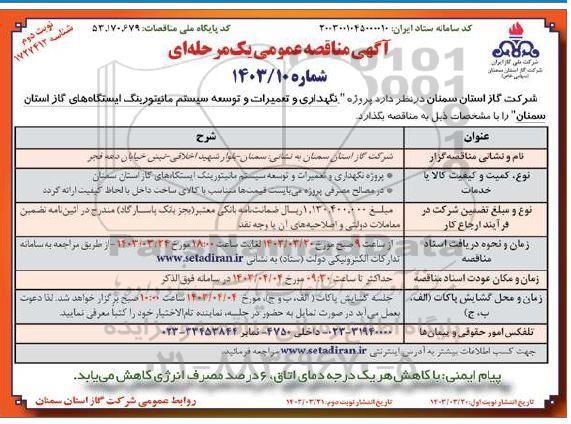 کد سامانه ستاد ایران: ۲۰۰۳۰۰۱۰۴۵۰۰۰۰۱۰
کد پایگاه ملی مناقصات: ۵۳،۱۷۰،۶۷۹
نوبت دوم
شناسه ۱۷۲۷۴۱۲
شرکت ملی گاز ایران
شرکت گاز استان سمنان
(سهامی خاص)
آگهی مناقصه عمومی یک مرحله‌ای
شماره ۱۴۰۳/۱۰
شرکت گاز استان سمنان در نظر دارد پروژه "نگهداری و تعمیرات و توسعه سیستم مانیتورینگ ایستگاه‌های گاز استان
سمنان" را با مشخصات ذیل به مناقصه بگذارد.
عنوان
شرح
نام و نشانی مناقصه‌گزار
شرکت گاز استان سمنان به نشانی: سمنان-بلوار شهید اخلاقی-نبش خیابان دهه فجر
نوع، کمیت و کیفیت کالا یا
خدمات
* پروژه نگهداری و تعمیرات و توسعه سیستم مانیتورینگ ایستگاه‌های گاز استان سمنان
* در مصالح مصرفی پروژه می‌بایست قیمت‌ها متناسب با کالای ساخت داخل با لحاظ کیفیت ارائه گردد
نوع و مبلغ تضمین شرکت در
فرآیند ارجاع کار
مبلغ ۱,۱۳۰,۴۰۰,۰۰۰ریال ضمانت‌نامه بانکی معتبر(بجز بانک پاسارگاد) مندرج در آئین‌نامه تضمین
معاملات دولتی و اصلاحیه‌های آن یا وجه نقد
زمان و نحوه دریافت اسناد
مناقصه
از ساعت ۹ صبح مورخ ۱۴۰۳/۰۳/۲۰ لغایت ساعت ۱۸:۰۰ مورخ ۱۴۰۳/۰۳/۲۴ - از طریق مراجعه به سامانه
تدارکات الکترونیکی دولت (ستاد) به نشانی www.setadiran.ir
زمان و مکان عودت اسناد مناقصه
حداکثر تا ساعت ۰۹:۳۰ مورخ ۱۴۰۳/۰۴/۰۴ در سامانه فوق الذکر
زمان و محل گشایش پاکات (الف،
ب، ج)
جلسه گشایش پاکات (الف، ب و ج)، مورخ ۱۴۰۳/۰۴/۰۴ ساعت ۱۰:۰۰ صبح برگزار خواهد شد. لذا دعوت
بعمل می‌آید در صورت تمایل به حضور در جلسه، نماینده تام‌الاختیار خود را کتبا معرفی نمایید.
تلفکس امور حقوقی و پیمان‌ها
۰۲۳-۳۱۹۴۰۰۰۰- داخلی ۴۷۵۰- نمابر ۳۳۴۵۳۸۴۴-۰۲۳
جهت کسب اطلاعات بیشتر به آدرس اینترنتی www.setadiran.ir مراجعه فرمائید.
پیام ایمنی: با کاهش هر یک درجه دمای اتاق، ۶ درصد مصرف انرژی کاهش می‌یابد.
تاریخ انتشار نوبت اول: ۱۴۰۳/۰۳/۲۰
تاریخ انتشار نوبت دوم: ۱۴۰۳/۰۳/۲۱
روابط عمومی شرکت گاز استان سمنان